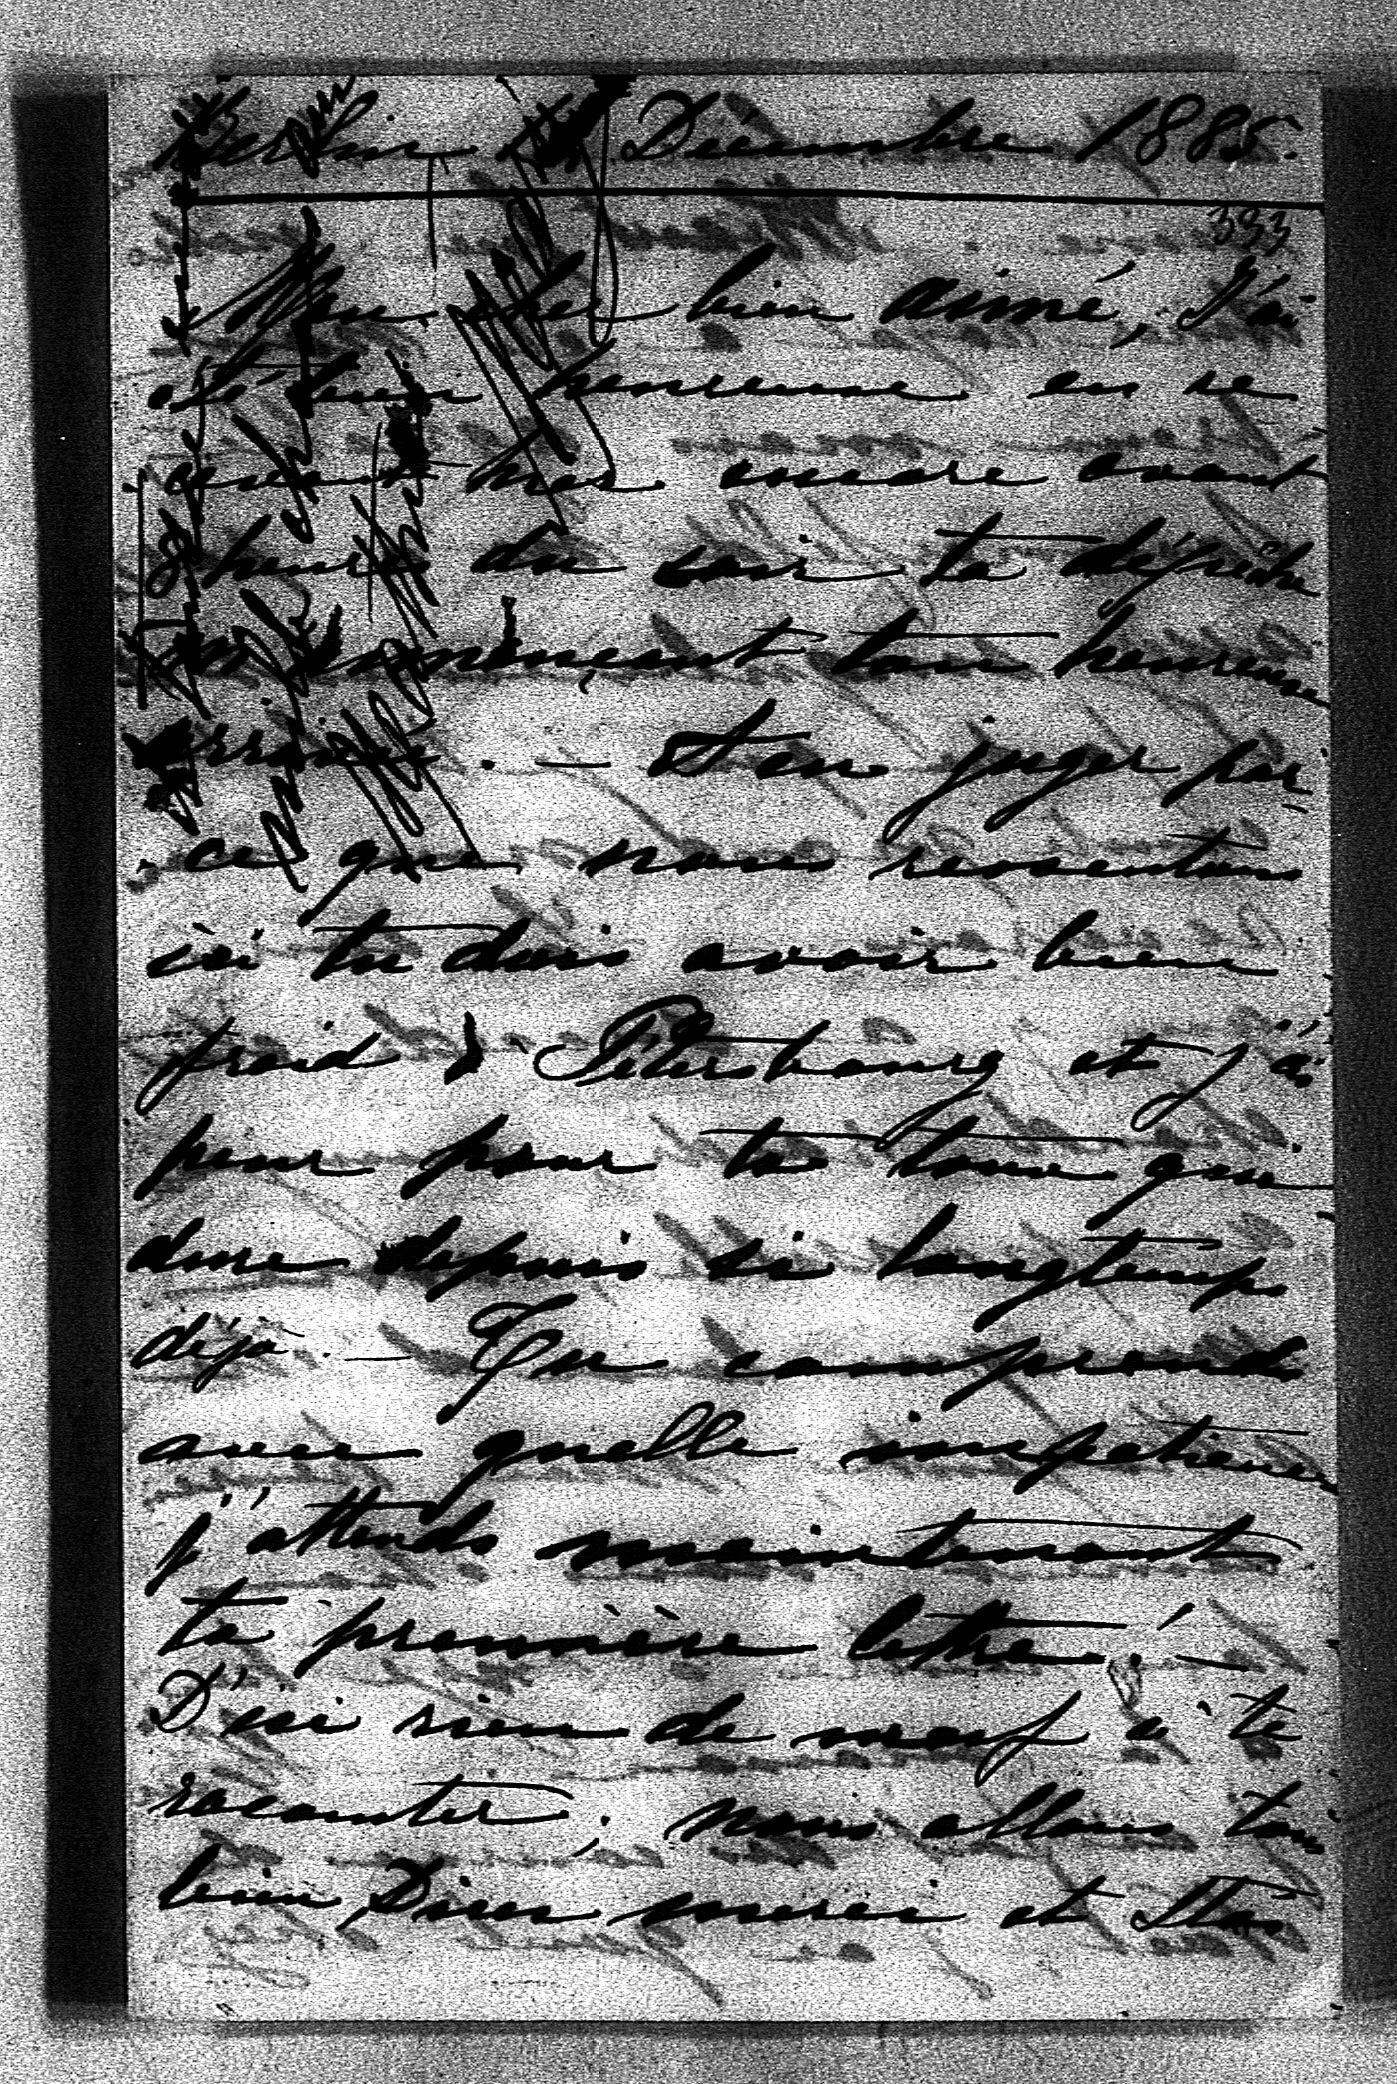 Berlin Décembre 1885.
333
Mon cher bien aimé, J'ai
été bien heureuse en re
cevant hier encore avant
8 heures du soir ta dépêche
m'annonçant ton heureuse
arrivée. — A en juger par
ce que nous ressentons
ici tu dois avoir bien
froid à Pétersbourg et j'ai
peur pour ta toux qui
dure depuis si longtemps
déjà. — Tu comprends
avec quelle impatience
j'attends maintenant
ta première lettre! —
D'ici rien de neuf à te
raconter, nous allons tous
bien, Dieu merci et Stas